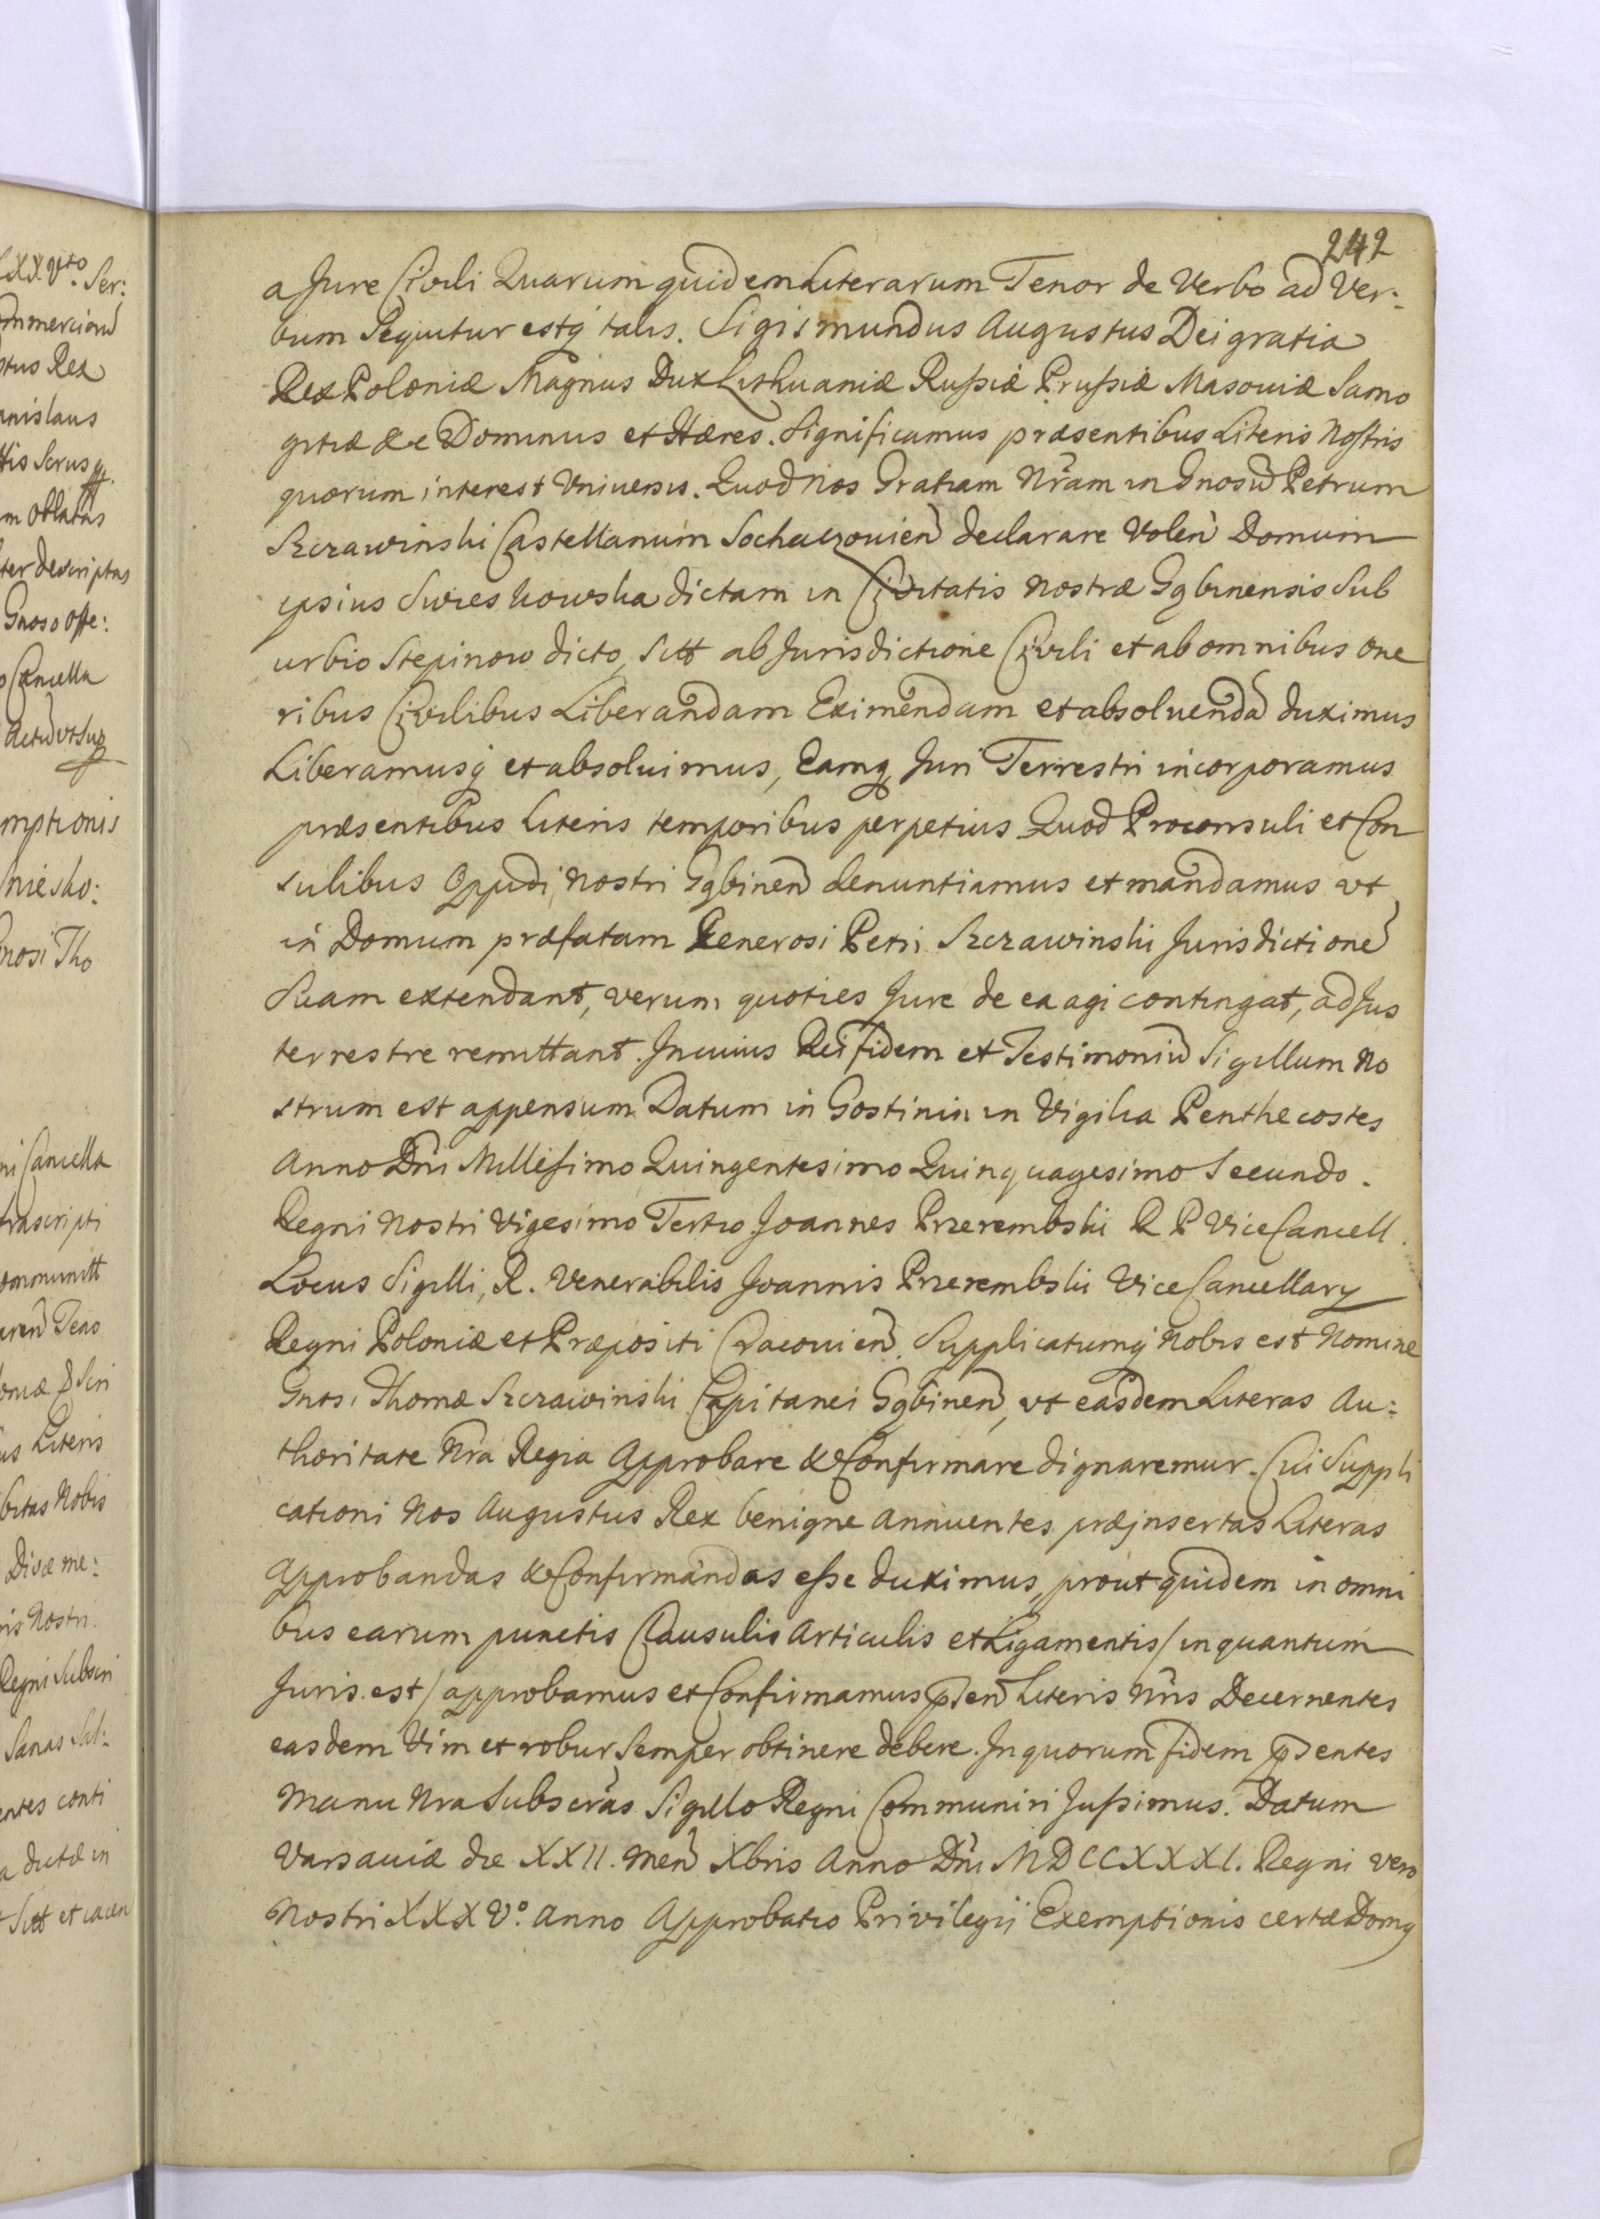 242
a Jure Civili Quarum quidem Literarum Tenor de Verbo ad Ver:
bum Sequitur estq́ talis. Sigismundus Augustus Dei gratia
Rex Poloniæ Magnus Dux Lithuaniæ Rußiæ Prußiæ Masouiæ Samo
gitiæ &c Dominus et Hæres. Significamus præsentibus Literis Nostris
quorum interest Vniuersis. Quod nos Gratiam Nr̃am in Gnosũ Petrum
Szczawinski Castellanum Sochaczouień declarare Voleń Domum
ipsius Swieskowska dictam in Civitatis nostræ Gąbinensis Sub
urbio Stepinow dicto, Sitt ab Jurisdictione Civili et ab omnibus one
ribus Civilibus Liberandam Eximendam et absoluendã duximus
Liberamusq́ et absoluimus, Eamq, Juri Terrestri incorporamus
præsentibus Literis temporibus perpetuis Quod Proconsuli et Con
sulibus Oppidi nostri Gąbineń denuntiamus et mandamus vt
in Domum præfatam Generosi Petri Szczawinski Jurisdictionẽ
Suam extendant, verum quoties Jure de ea agi contingat, ad Jus
terrestre remittant. In cuius Rei fidem et Testimoniũ Sigillum No
strum est appensum Datum in Gostinin in Vigilia Penthecostes
Anno Dñi Millesimo Quingentesimo Quinquagesimo Secundo.
Regni Nostri Vigesimo Tertio Joannes Przerembski R P Vice Cancell.
Locus Sigilli, R. Venerabilis Joannis Przerembski Vice Cancellary
Regni Poloniæ et Præpositi Cracouień. Supplicatumq́ Nobis est Nomine
Gnosi Thomæ Szczawinski Capitanei Gąbineń, vt easdem Literas Au:
thoritate Nr̃a Regia Approbare & Confirmare dignaremur. Cui Suppli
cationi Nos Augustus Rex benigne annuentes præinsertas Literas
Approbandas & Confirmandas eße duximus, prout quidem in omni
bus earum punctis Clausulis Articulis et Ligamentis / in quantum
Juris est / approbamus et Confirmamus p̃seń Literis Nr̃is Decernentes
easdem Vim et robur Semper obtinere debere. In quorum fidem p̃sentes
Manu Nra Subscr̃as Sigillo Regni Communiri Jußimus. Datum
Varsauiæ die XXII. Meñ Xbris Anno Dñi MDCCXXXI. Regni vero
Nostri XXXVº. Anno Approbatio Privilegij Exemptionis certæ Domq